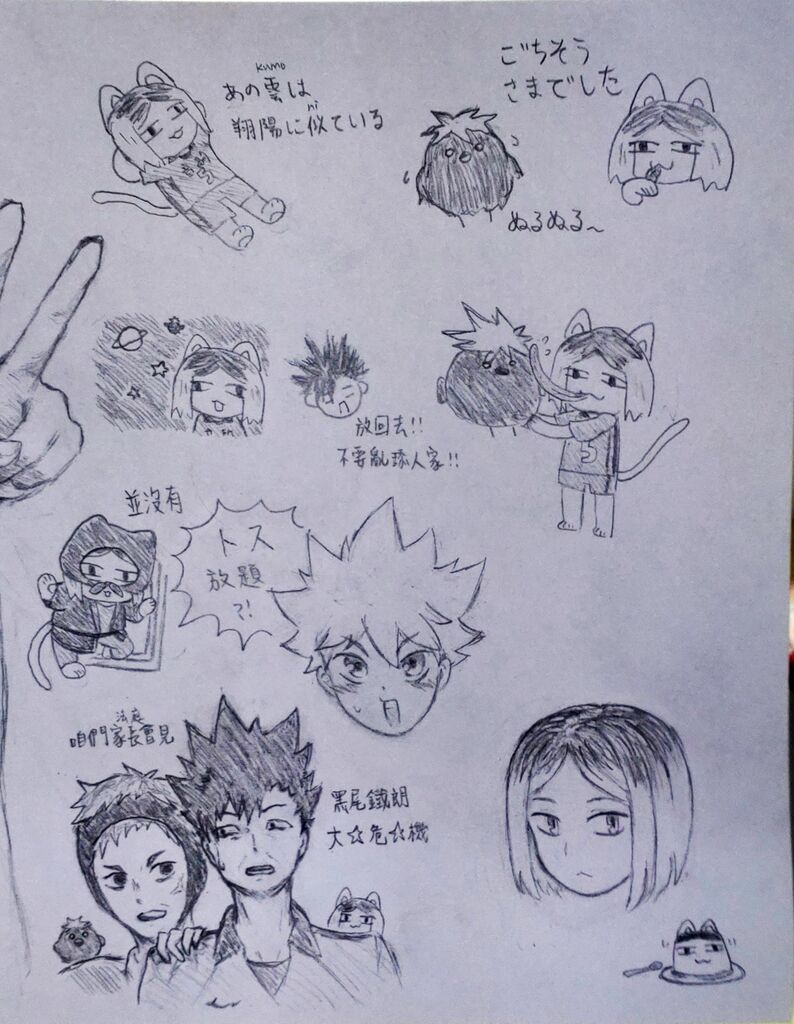 kumo
あの雲は
ni
翔陽に似ている
ごちそう
さまでした
ぬるぬる~
放回去!!
不要亂舔人家!!
5
並沒有
トス
放題
?!
法庭
咱們家長會見
黑尾鐵朗
大☆危☆機